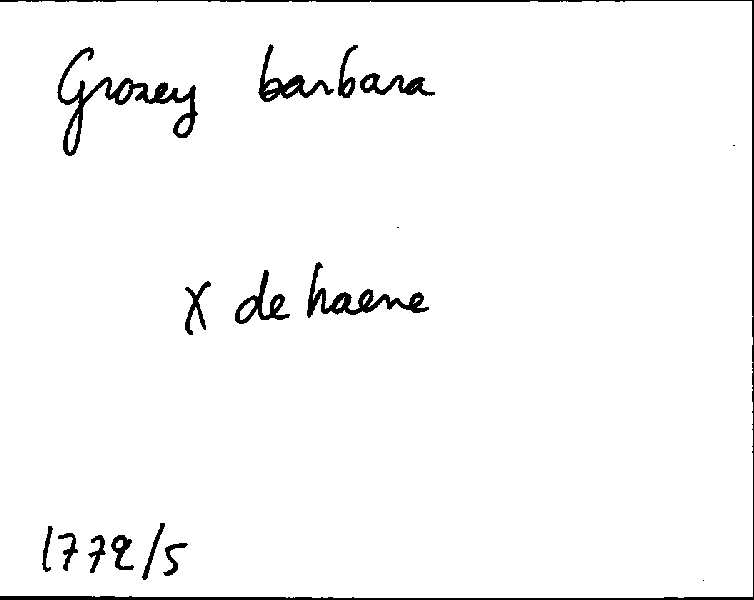 Grozey barbara
X de haene
1772/5